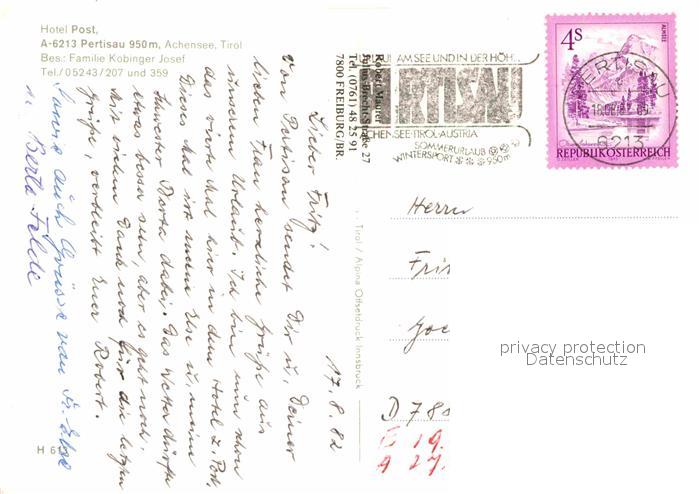 Hotel Post,
A-6213 Pertisau 950m, Achensee, Tirol
Bes.: Familie Kobinger Josef
Tel./05243/207 und 359
17.8.82
Lieber Fritz!
Von Pertisau sendet Dir u. Deiner
lieben Frau herzliche Grüße aus
unserem Urlaub. Ich bin nun schon
das vierte Mal hier in dem Hotel z. Post,
dieses Mal ist meine Else u. meine
Schwester Berta dabei. Das Wetter dürfte
etwas besser sein, aber es geht noch.
Mit vielem Dank noch für die
Grüße, verbleibt Euer Robert.
auch Grüsse von Fr. Else
u. Berta Felde
H 61
Tirol / Alpina Offsetdruck Innsbruck
Tel. (0761) 48 25 91
7800 FREIBURG/BR.
AM SEE UND IN DER HÖH
HENSEE·TIROL·AUSTRIA
SOMMERURLAUB
WINTERSPORT 950m
4S
ALMSEE
REPUBLIK ÖSTERREICH
PERTISAU
6213
Herrn
D 780
privacy protection
Datenschutz
E 19.
A 27.